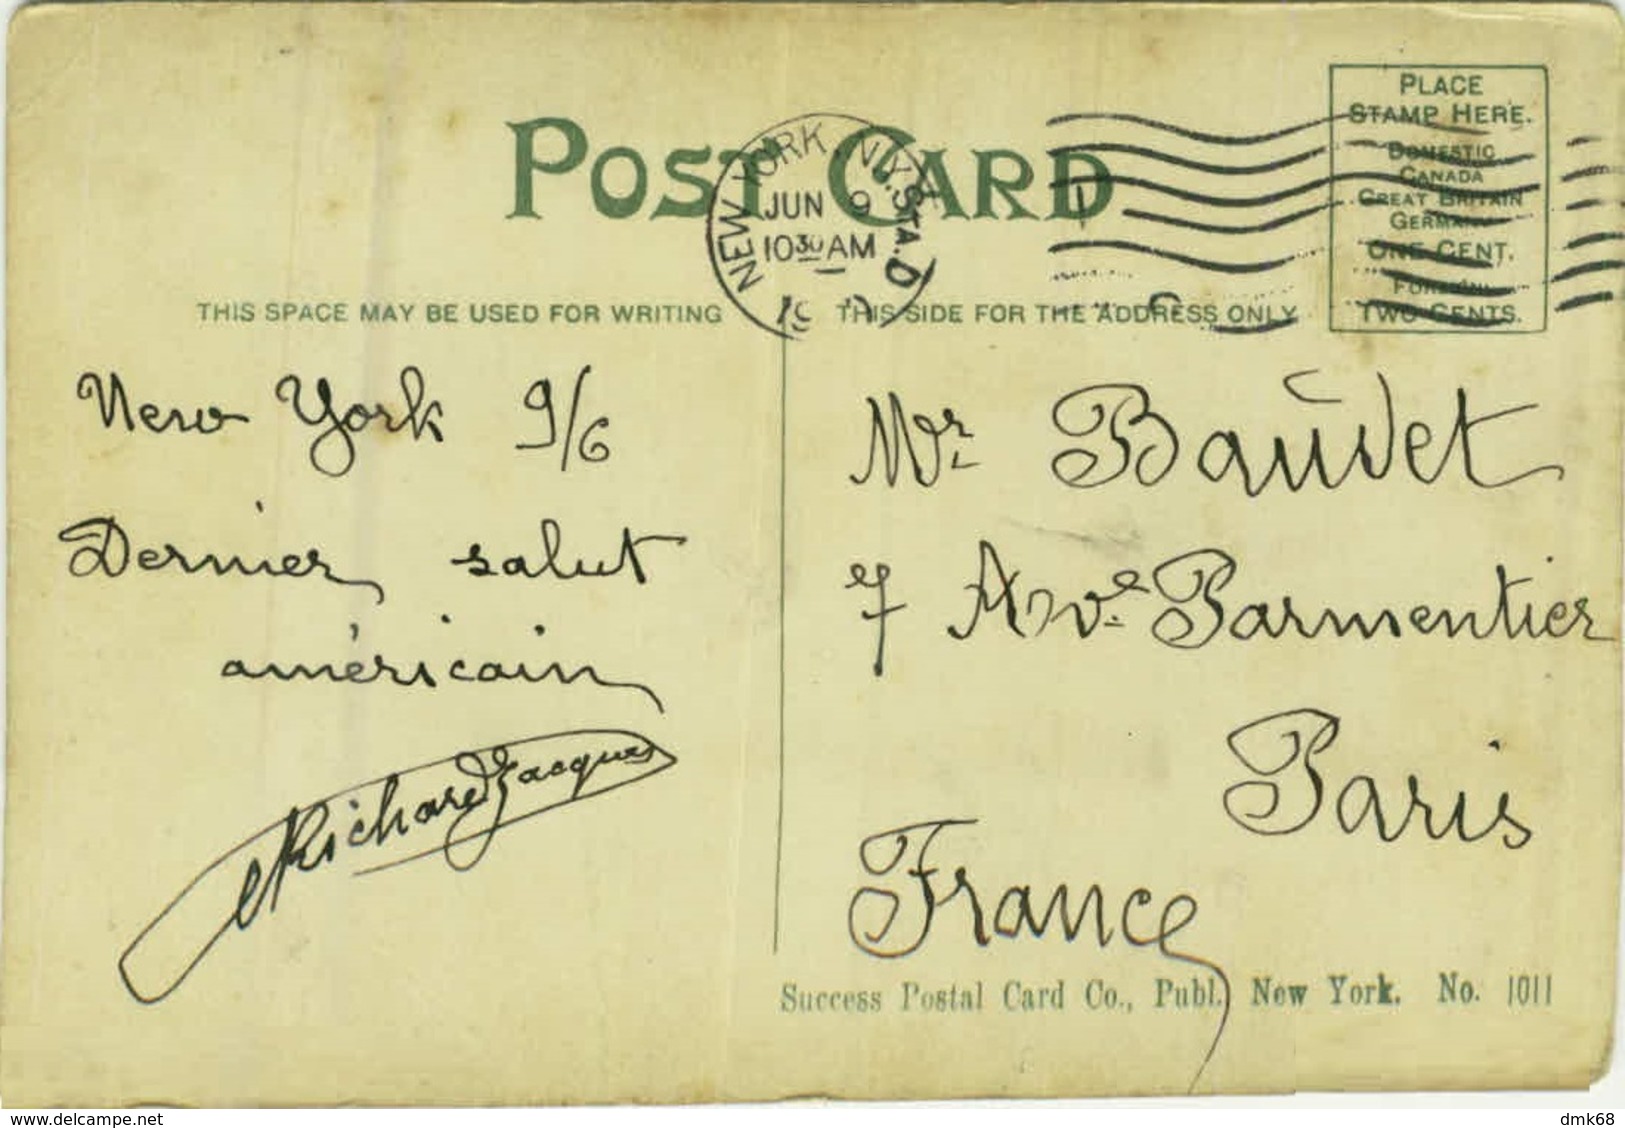 POST CARD
NEW YORK, N.Y. STA. D
JUN 9
10 30 AM
PLACE
STAMP HERE.
DOMESTIC
CANADA
GREAT BRITAIN
GERMANY
ONE CENT.
FOREIGN
TWO CENTS.
THIS SPACE MAY BE USED FOR WRITING
THIS SIDE FOR THE ADDRESS ONLY
New York 9/6
Dernier salut
américain
Richard Jacques
Mr. Baudet
7 Ave. Parmentier
Paris
France
Success Postal Card Co., Publ. New York. No. 1011
delcampe.net
dmk68